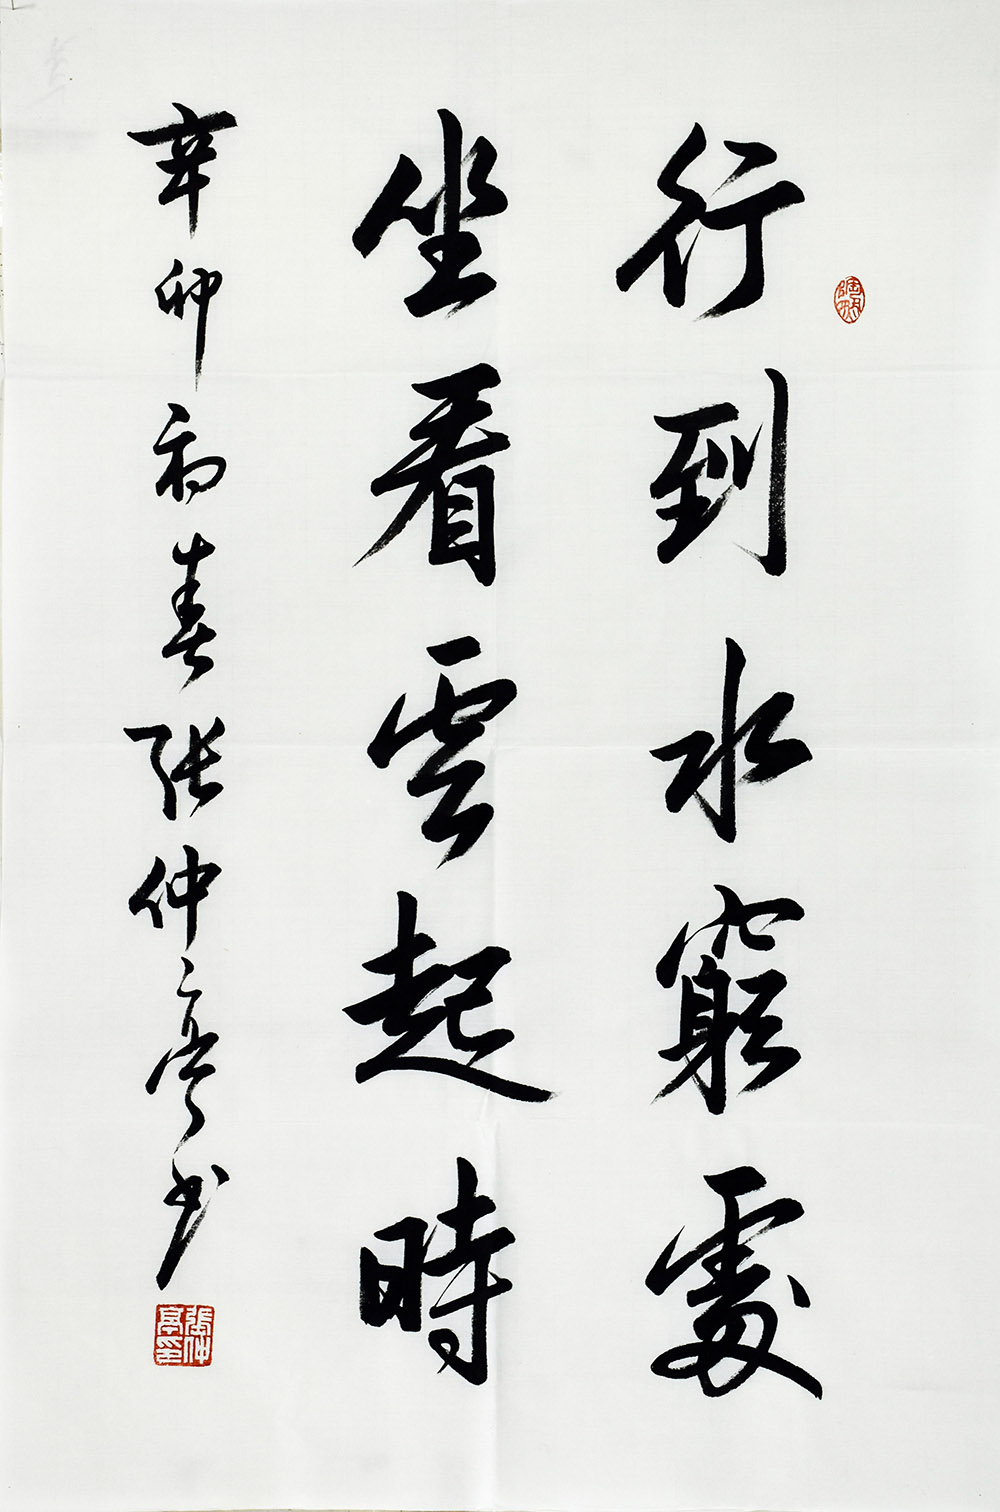 行到水窮處
坐看雲起時
辛卯初春張仲亭书
張仲亭印